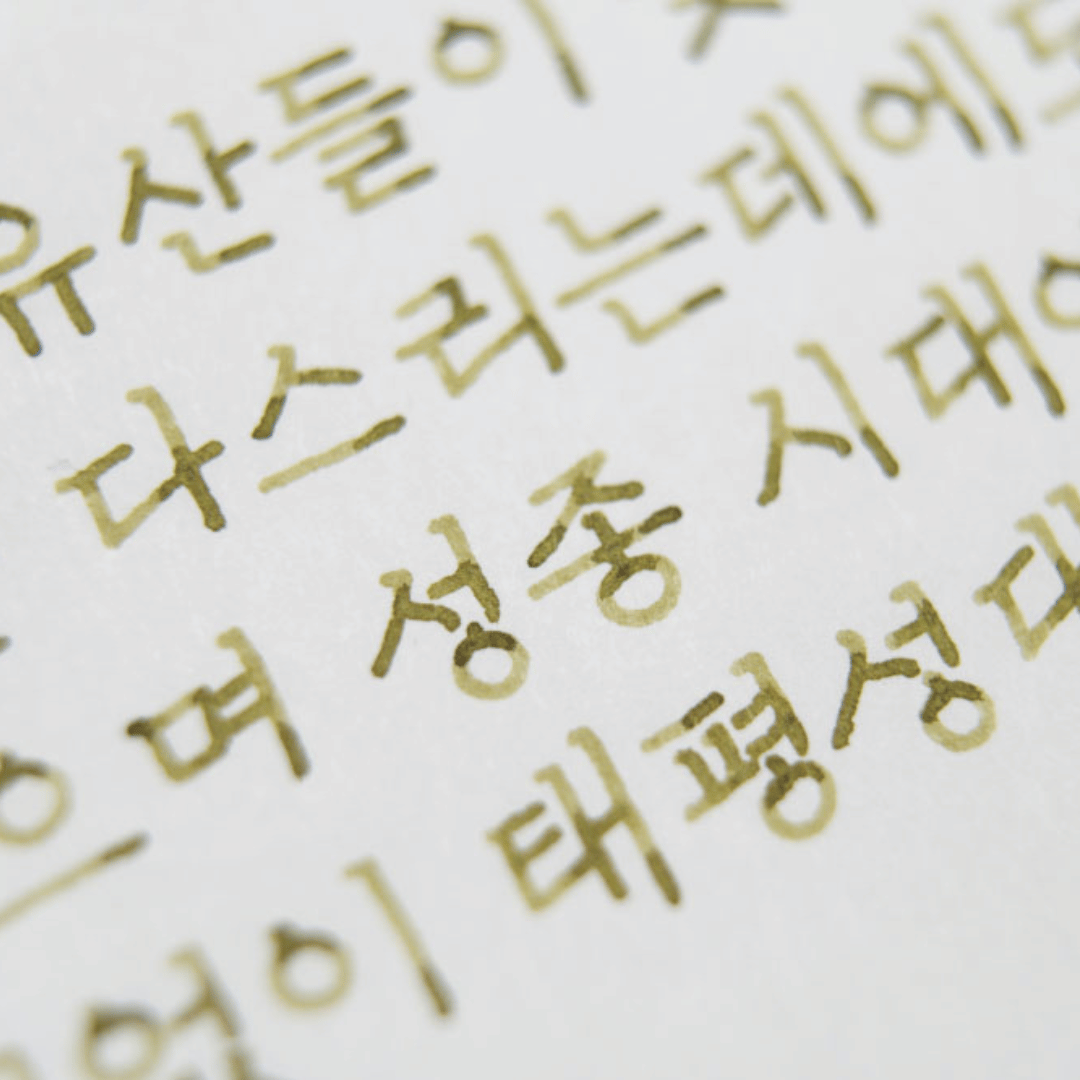 유산들이
다스리는데에도
며 성종 시대
태평성대